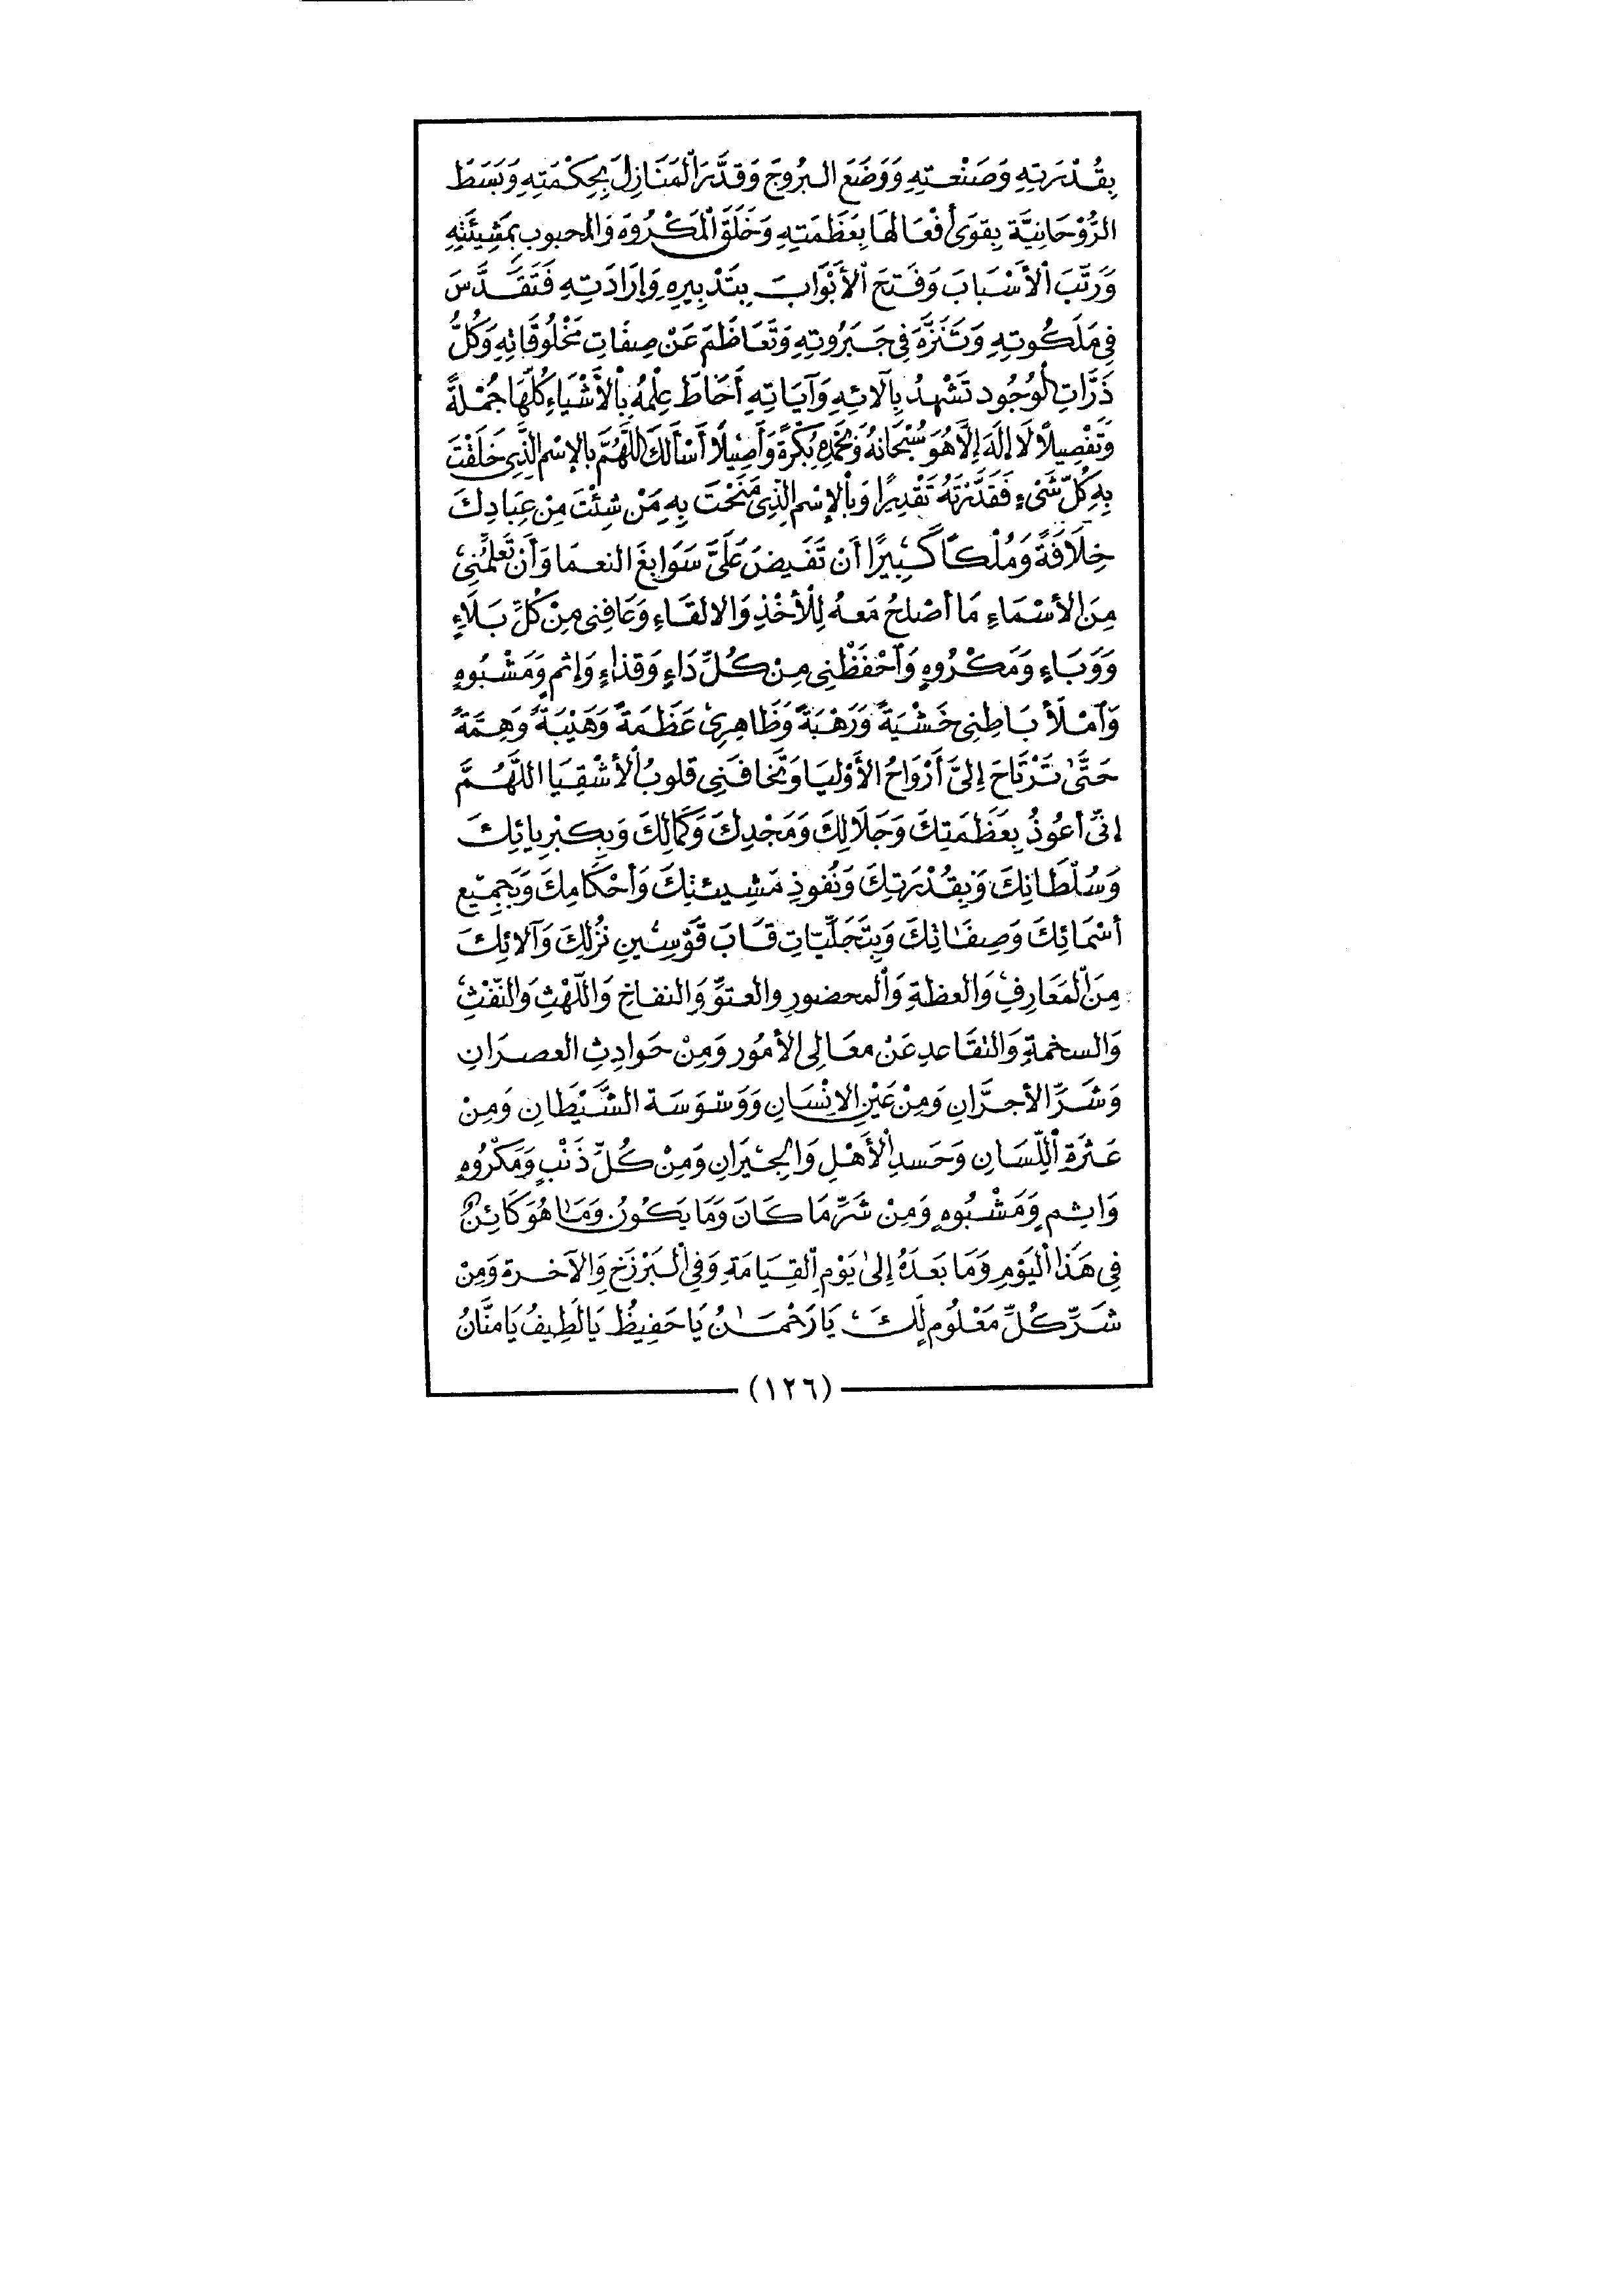 بِقُدْرَتِهِ وَصَنْعَتِهِ وَوَضَعَ البُرُوجَ وَقَدَّرَ الْمَنَازِلَ بِحِكْمَتِهِ وَبَسَطَ
الرُّوْحَانِيَّة بِقوَى أَفْعَالِهَا بِعَظَمَتِهِ وَخَلَقَ الْمَكْرُوهَ وَالمحبوب بِمَشِيئَتِهِ
وَرَتَّبَ الأَسْبَابَ وَفَتحَ الأَبْوَابَ بِتَدْبِيرِهِ وَإِرَادَتِهِ فَتَقَدَّسَ
فِي مَلَكُوتِهِ وَتَنَزَّهَ فِي جَبَرُوتِهِ وَتَعَاظَمَ عَنْ صِفَاتِ مَخْلُوقَاتِهِ وَكُلُّ
ذَرَّاتِ الْوُجُود تَشْهَدُ بِآلائِهِ وَآيَاتِهِ أَحَاطَ عِلْمُهُ بِالأَشْيَاءِ كُلِّهَا جُمْلَةً
وَتَفْصِيلاً لَا إِلَهَ إِلَّا هُوَ سُبْحَانَهُ وَبِحَمْدِهِ بُكْرَةً وَأَصِيْلاً أَسْأَلُكَ اللَّهُمَّ بِالإِسْمِ الَّذِي خَلَقْتَ
بِهِ كُلَّ شَيْءٍ فَقَدَّرْتَهُ تَقْدِيرًا وَبِالإِسْمِ الَّذِي مَنَحْتَ بِهِ مَنْ شِئْتَ مِنْ عِبَادِكَ
خِلَافَةً وَمُلْكاً كَبِيرًا أَن تَفَيضَ عَلَيَّ سَوَابِغَ النعمَا وَأَن تَعَلِّمَنِي
مِنَ الأَسْمَاءِ مَا أَصْلحُ مَعهُ لِلْأَخْذِ وَالالقَاءِ وَعَافِنِي مِنْ كُلِّ بَلَاءٍ
وَوَبَاءٍ وَمَكْرُوهٍ وَاحْفَظْنِي مِنْ كُلِّ دَاءٍ وَقذاءٍ وَإثمٍ وَمَشْبُوهٍ
وَامْلَأْ بَاطِنِي خَشْيَةً وَرَهْبَةً وَظَاهِرِي عَظَمَةً وَهَيْبَةً وَهِمَّةً
حَتَّى تَرْتَاحَ إِلَيَّ أَرْوَاحُ الأَوْلِيَا وَتَخافَنِي قلوبُ الأَشْقِيَا اللَّهُمَّ
إنِّي أعُوذُ بِعَظَمَتِكَ وَجَلَالِكَ وَمَجْدِكَ وَكَمَالِكَ وَبِكبْرِيائِكَ
وَسُلْطَانِكَ وَبِقُدْرَتِكَ وَنُفوذِ مَشِيئتِكَ وَأَحْكَامِكَ وَبَجَمِيْعِ
أَسْمَائِكَ وَصِفَاتِكَ وَبِتَجَلِّيَاتِ قَابَ قَوْسَيْنِ نُزُلِكَ وَآلائِكَ
مِنَ الْمَعَارِفِ وَالعظةِ وَالْمحضورِ والعتوِّ وَالنفاخِ وَاللَّهْثِ وَالنَّفْثِ
وَالسخمةِ وَالتقَاعدِ عَنْ معَالِي الأمُور وَمِنْ حَوادِثِ العصرَانِ
وَشَرِّ الأجرَّانِ وَمِنْ عَيْنِ الإنْسَانِ وَوَسْوَسَة الشَّيْطَانِ وَمِنْ
عَثْرَةِ الْلِّسَانِ وَحَسدِ الْأَهْلِ وَالْجِيْرَانِ وَمِنْ كُلِّ ذَنْبٍ وَمَكْرُوهٍ
وَإثمٍ وَمَشْبُوهٍ وَمِنْ شَرِّ مَا كَانَ وَمَا يَكُونُ وَمَا هُوَ كَائِنٌ
فِي هَذَا الْيَوْمِ وَمَا بَعدَهُ إِلَى يَوْمِ الْقِيَامَةِ وَفِي الْبَرْزَخِ وَالآخرة وَمِنْ
شَرِّ كُلِّ مَعْلُومٍ لَكَ يَا رَحْمَنُ يَا حَفِيظُ يَا لَطِيفُ يَا مَنَّانُ
(١٢٦)